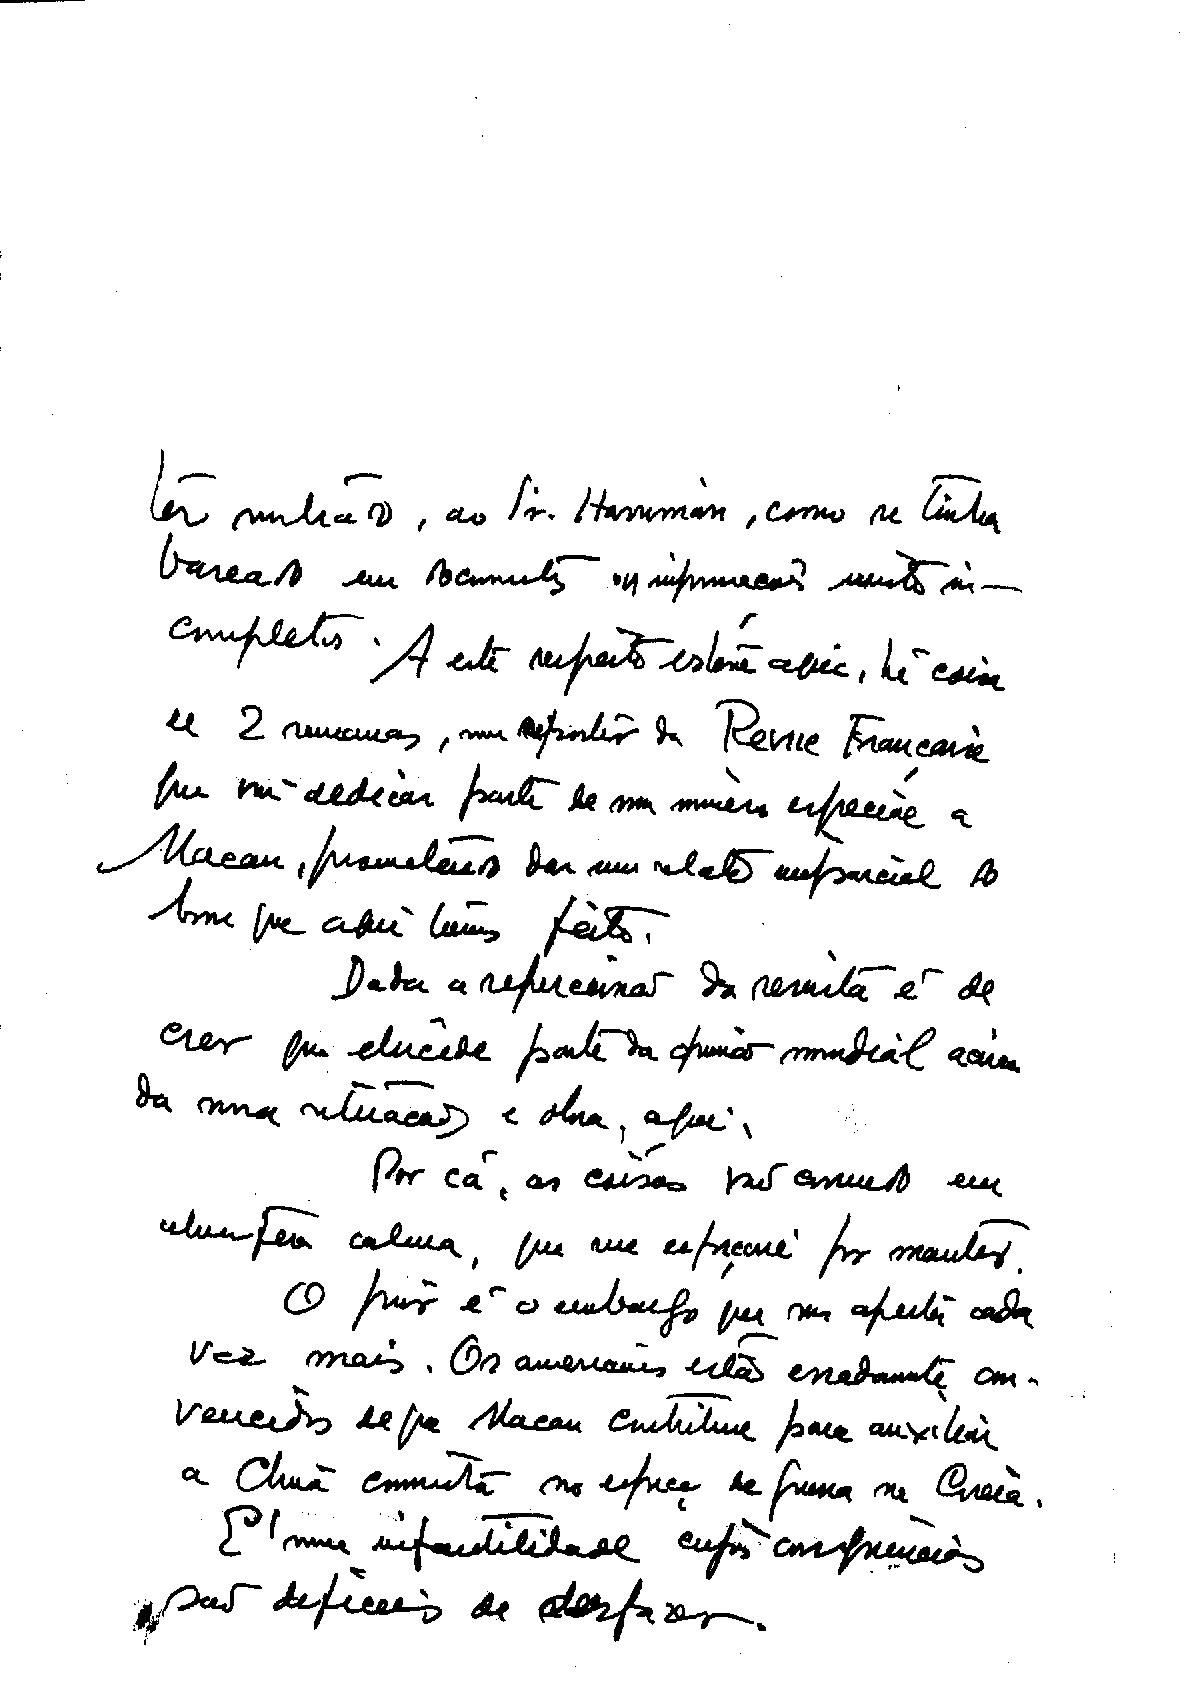 ao Sr. Harriman, como se tinha
baseado em documentos ou informações muito in-
completos. A este respeito esteve aqui, há coisa
de 2 semanas, um repórter da Revue Française
que vai dedicar parte de um número especial a
Macau, prometendo dar um relato imparcial do
bom que aqui temos feito.
Dada a repercussão da revista é de
crer que elucide parte da opinião mundial acêrca
da nossa situação e obra, aqui.
Por cá, as coisas vão correndo em
atmosfera calma, que me esforçarei por manter.
O pior é o embargo que nos aperta cada
vez mais. Os americanos estão erradamente con-
vencidos de que Macau contribue para auxiliar
a China comunista no esforço de guerra na Coreia.
E' uma infantilidade cujas consequências
são difíceis de desfazer.